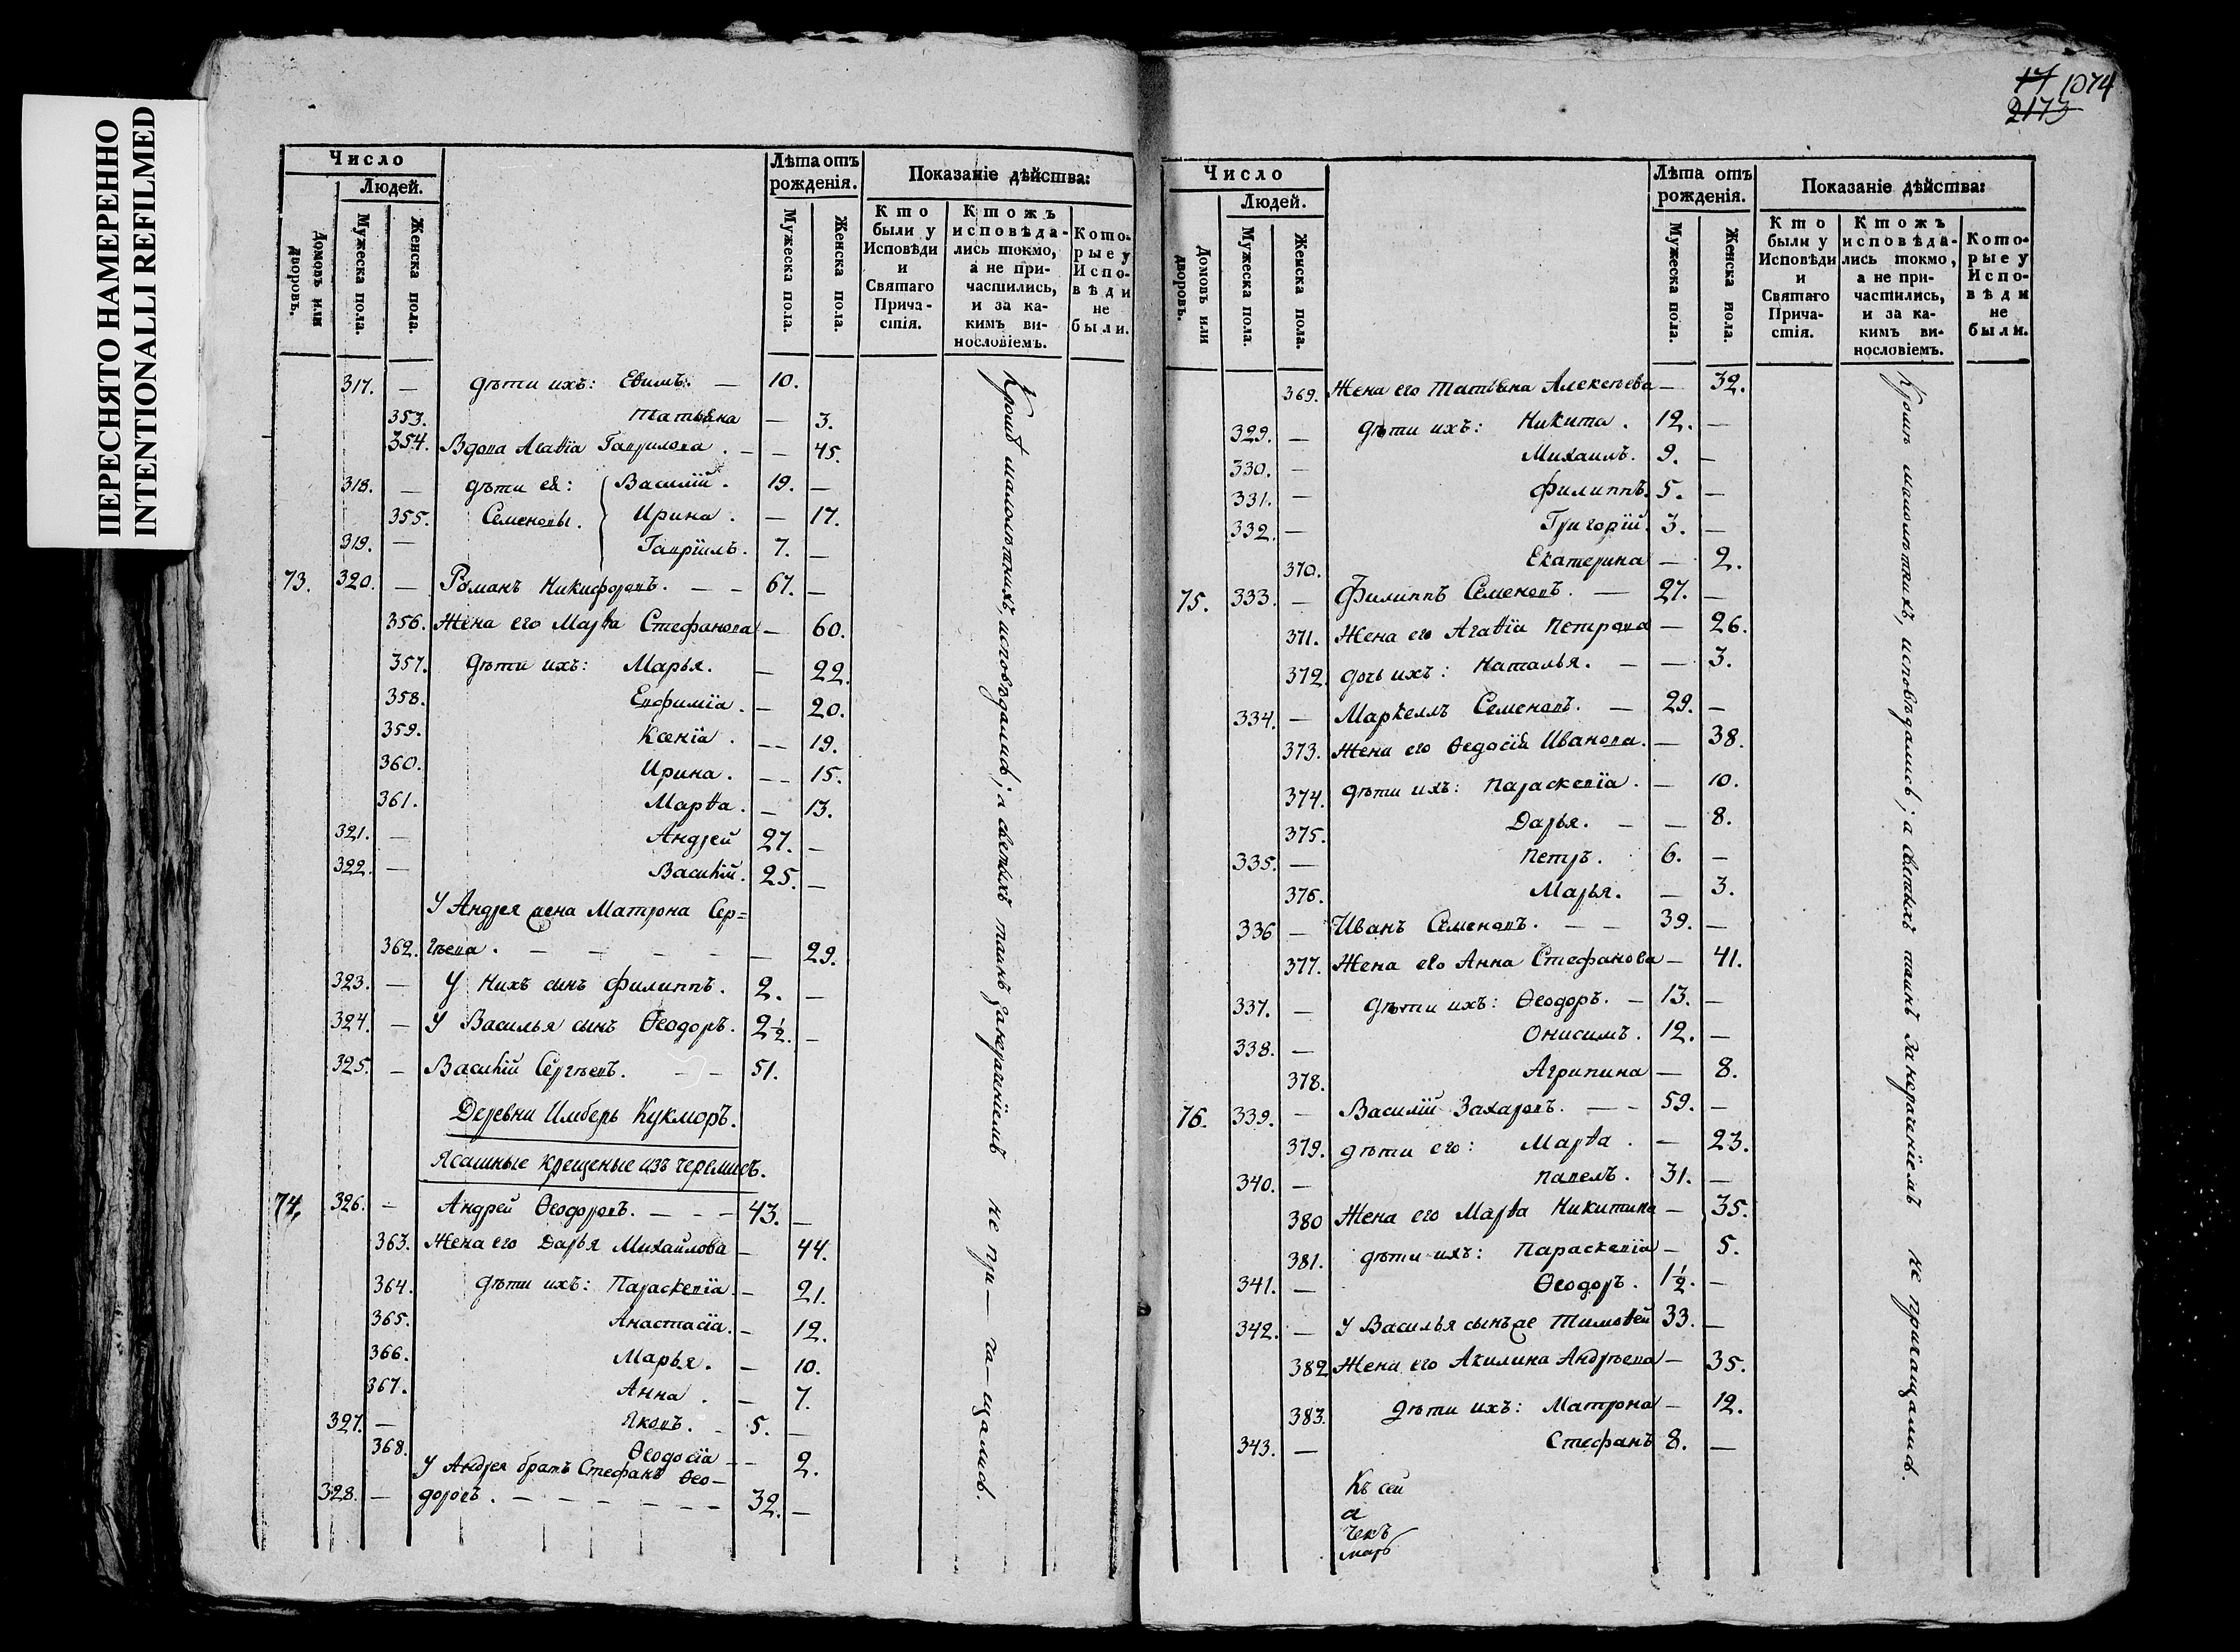 ПЕРЕСНЯТО НАМЕРЕННО
INTENTIONALLI REFILMED
Число
Людей.
Домовъ или дворовъ.
Мужеска пола.
Женска пола.
Лѣта отъ рожденія.
Мужеска пола.
Женска пола.
Показаніе дѣйства:
Кто были у Исповѣди и Святаго Прича-стія.
Ктожъ исповѣда-лись токмо, а не при-частились, и за ка-кимъ ви-нословіемъ.
Кото-рые у Испо-вѣди не были.
317. — дѣти ихъ: Евимъ. — 10.
353. Татьяна — 3.
354. Вдова Агаѳіа Гаврилова. — — 45.
318. — дѣти ея: Василій. 19. —
355. Семеновы. Ирина. — 17.
319. — Гавріилъ. 7. —
73. 320. — Романъ Никифоровъ. — — 67. —
356. Жена его Марѳа Стефанова — 60.
357. дѣти ихъ: Марья. — 22.
358. Евфиміа. — 20.
359. Ксеніа. — — 19.
360. Ирина. — — 15.
361. Марѳа. — 13.
321. — Андрей 27. —
322. — Василій. 25. —
У Андрея жена Матрона Сер=
362. гѣева. — — — — — 29.
323. — У нихъ сынъ Филиппъ. 2. —
324. — У Василья сынъ Ѳеодоръ. 2½. —
325. — Василій Сергѣевъ. — — 51.
Деревни Имберь Кукморъ.
Ясашные крещеные изъ черемисъ.
74. 326. — Андрей Ѳеодоровъ. — — — 43. —
363. Жена его Дарья Михайлова — 44.
364. дѣти ихъ: Параскевіа. — 21.
365. Анастасіа. — 12.
366. Марья. — 10.
367. Анна. — 7.
327. — Яковъ. — 5. —
368. Ѳеодосіа — — 2.
У Андрея братъ Стефанъ Ѳео—
328. — доровъ. — — — — — — — 32. —
Кромѣ малолѣтнихъ, исповѣдались; а святыхъ таинъ занераченіемъ не при — ча — щались.
17 1074
2173
Число
Людей.
Домовъ или дворовъ.
Мужеска пола.
Женска пола.
Лѣта отъ рожденія.
Мужеска пола.
Женска пола.
Показаніе дѣйства:
Кто были у Исповѣди и Святаго Прича-стія.
Ктожъ исповѣда-лись токмо, а не при-частились, и за ка-кимъ ви-нословіемъ.
Кото-рые у Испо-вѣди не были.
369. Жена его Татьяна Алексѣева — 32.
329. — дѣти ихъ: Никита. 12. —
330. — Михаилъ. 9. —
331. — Филиппъ. 5. —
332. — Григорій. 3. —
370. Екатерина — 2.
75. 333. — Филиппъ Семеновъ. — 27. —
371. Жена его Агаѳіа Петрова — 26.
372. дочь ихъ: Наталья. — — 3.
334. — Маркеллъ Семеновъ. — 29. —
373. Жена его Ѳедосія Иванова. — 38.
374. дѣти ихъ: Параскевіа. — 10.
375. Дарья. — — 8.
335. — Петръ. 6. —
376. Марья. — 3.
336 — Иванъ Семеновъ. — — 39. —
377. Жена его Анна Стефанова — 41.
337. — дѣти ихъ: Ѳеодоръ. — 13. —
338. — Онисимъ. 12. —
378. Агрипина — 8.
76. 339. — Василій Захаровъ. — — 59. —
379. дѣти его: Марѳа. — 23.
340. — Павелъ. 31. —
380 Жена его Марѳа Никитина — 35.
381. дѣти ихъ: Параскевіа — 5.
341. — Ѳеодоръ. 1½. —
342. — У Василья сынъ же Тимоѳей 33. —
382 Жена его Акилина Андрѣева — 35.
383. дѣти ихъ: Матрона — 12.
343. — Стефанъ 8. —
Къ сей
а
чекъ
марѳ
Кромѣ малолѣтнихъ, исповѣдались; а святыхъ таинъ занераченіемъ не причащались.